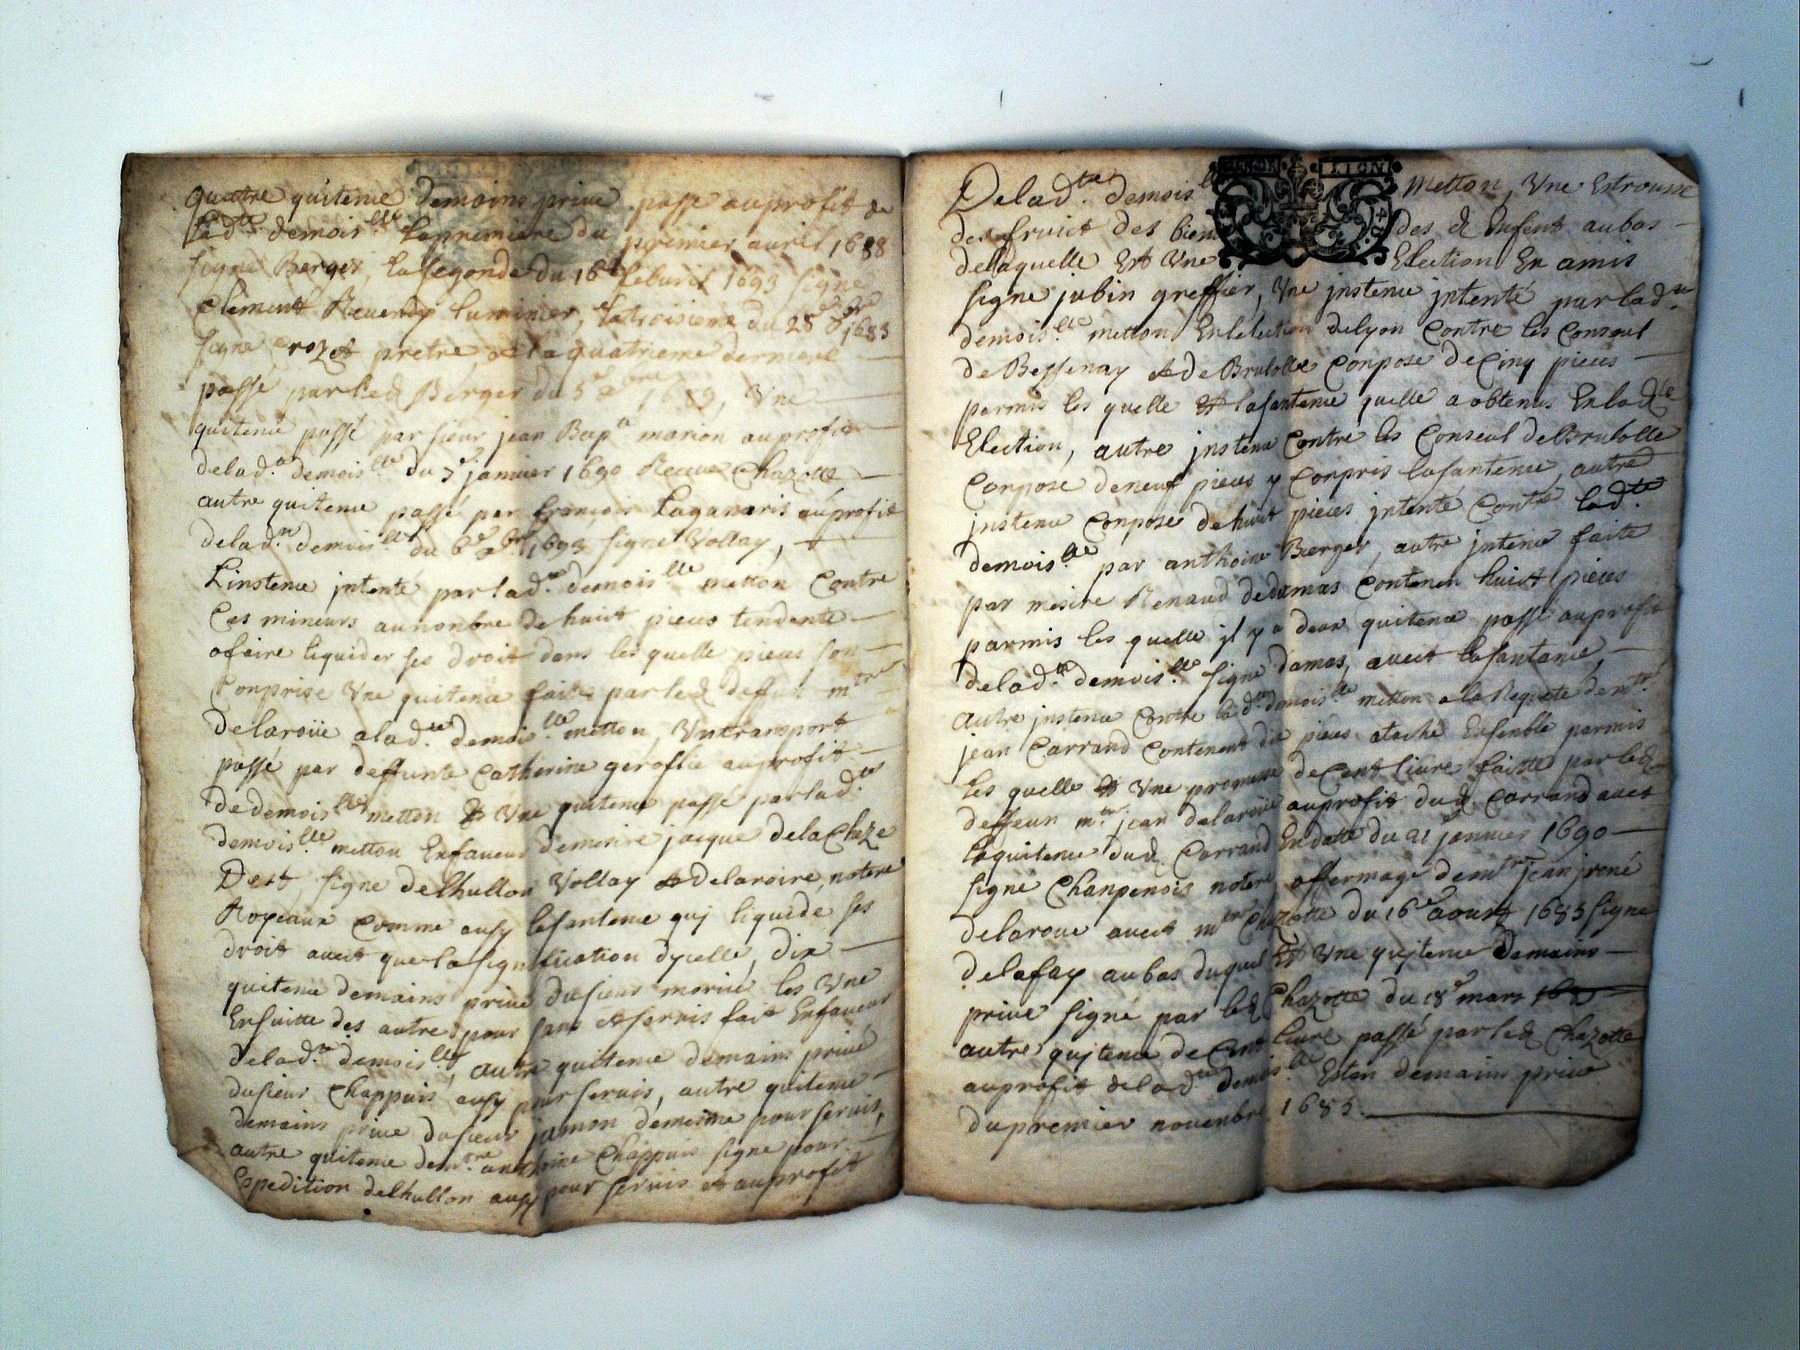 quattre quitence demains privé passé au profit de
lad.te demois.lle la premiere du premier avril 1688
signe Berger, la segonde du 16e feburié 1693 signe
Clement Reverdy luminier, la troisieme du 28e 8bre 1683
signe rozet pretre et la quatrieme derniere
passé par led Berger du 3e 1689, Une
quitence passé par sieur jean Bap.te marion au profit
de lad.te demois.lle du 7e janvier 1690 Receue Chazotte
autre quitence passé par françois Laganaris au profit
de lad.te demois.lle du 6e 1693 signe Vollay,
L'instence jntenté par lad.te demois.lle metton Contre
Ces mineurs au nonbre de huict pieces tendente
a faire liquider ses droit dans les quelle pieces son
Conprise Une quitence faite par led deffunt m.tre
delaroüe a lad.te demois.lle metton, Un transport
passé par deffunte Catherine geroflie au profit
de demois.lle metton & Une quitence passé par lad.te
demois.lle metton En faveur de mesire jacque de la Cheze
Dest, signe delhullon Vollay & delaroire, notere
Royeaux Comme ausy la santence quj liquide ses
droit avect que la signification dycelle, dix
quitence demains prive du sieur morné les Une
Ensuitte des autres pour sans et servis fait En faveur
de lad.te demois.lle, autre quitence demains privé
du sieur Chappuis ausy pour servis, autre quitence
demains prive du sieur jamon demesme pour servis,
autre quitence de m.tre anthoine Chappuis signe pour
Expedition delhullon ausy pour servis et au profit
De lad.te demois.lle Metton, Une Estrousse
des fruict des bien des d Enfent au bas
de laquelle Est Une Election En amis
signe jubin greffier, Une jnstence jntenté par lad.te
demois.lle metton En lelection de lyon Contre les Conseul
de Bessenay & de Brulolle Conpose de Cinq pieces
permis les quelle Est la santence quelle a obtenus En lad.te
Election, autre jnstence Contre les Conseul de Brulolle
Conpose de neuf pieces y Conpris la santence, autre
jnstence Conpose de huict pieces jntenté Contre lad.te
demois.lle par anthoine Berger, autre jntence faite
par mesire Renaud dedamas Contenen huict pieces
parmis les quelle jl y a deux quitence passé au profit
de lad.te demois.lle signe damas, avect la santance,
Autre jnstence Contre lad.te demois.lle metton a la Requete de m.tre
jean Carrand Contenent dix pieces ataché Ensenble permis
les quelle Est Une promesse de Cent livre faitte par led
deffeun m.tre jean delaroüe au profit dud Carrand avect
la quitence dud Carrand En datte du 21 janvier 1690
signé Chanpenois notere affermage de m.tre jean jrené
delaroue avect m.tre Chazotte du 16e aoust 1685 signe
delafay au bas duquel Est Une quitence demains
privé signé par led Chazotte du 18e mars
autre quitence de Cent livre passé par led Chazotte
au profit de lad.te demois.lle Est en demains privé
du premier novenbre 1685.
LION